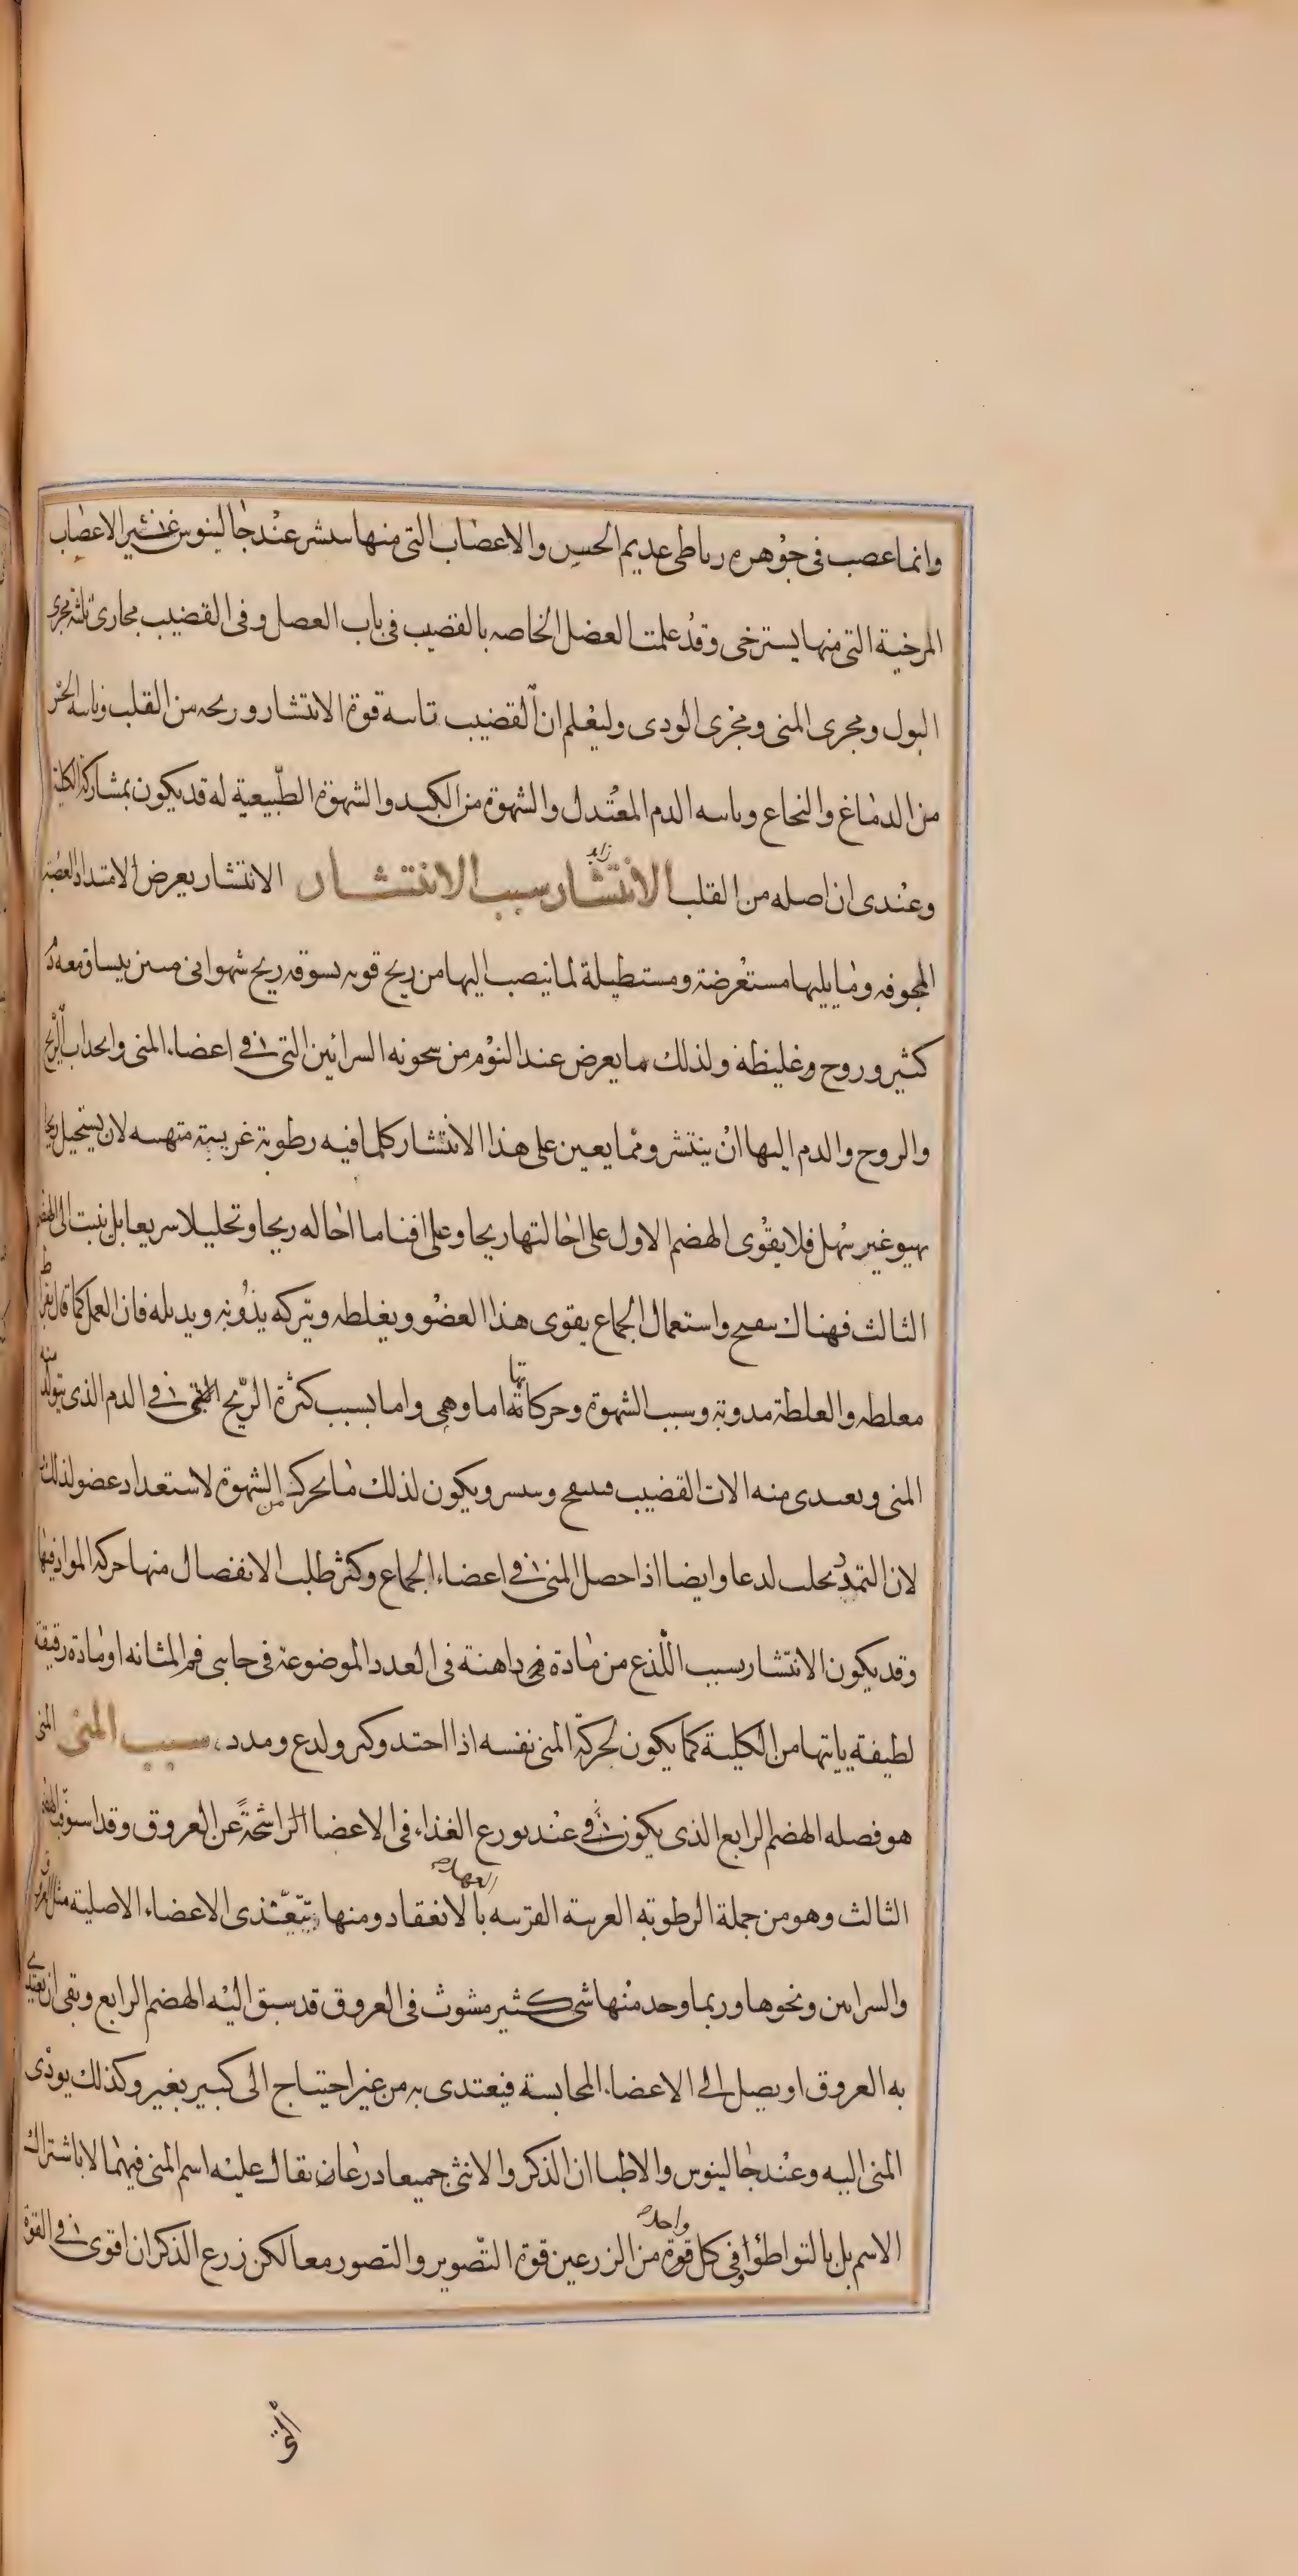 وانما عصب فى جوهره رباطى عديم الحس والاعصاب التى منها ينتشر عند جالينوس غير الاعصاب
المرخية التى منها يسترخى وقد علمت العضل الخاصه بالقضيب فى باب العصل وفى القضيب مجارى ثلثة مجرى
البول ومجرى المنى ومجرى الودى وليعلم ان القضيب تاسه قوة الانتشار وريحه من القلب وياسه الحس
من الدماغ والنخاع وياسه الدم المعتدل والشهوة من الكبد والشهوة الطبيعية له قد يكون بمشاركة الكلية
وعندى ان اصله من القلب الانتشار زايد سبب الانتشار الانتشار يعرض لامتداد العصبة
المجوفه وما يليها مستعرضة ومستطيلة لما ينصب اليها من ريح قويه يسوقه ريح شهوانى متين ينساق معه دم
كثير وروح وغليظة ولذلك ما يعرض عند النوم من سخونه السرائين التى فى اعضاء المنى وانحداب الريح
والروح والدم اليها ان ينتشر ومما يعين على هذا الانتشار كلما فيه رطوبة غريبة متهيه لان يستحيل ريحا
تهيو غير سهل فلا يقوى الهضم الاول على احالتها ريحا وعلى افنا ما احاله ريحا وتحليلا سريعا بل يثبت الى الهضم
الثالث فهناك ينفح واستعمال الجماع يقوى هذا العضو ويغلطه ويتركه يذوبه ويدبله فان العمل كما قال بقراط
مغلطه والعلطة مدوبة وسبب الشهوة وحركاتها اما وهمى واما بسبب كثرة الريح التى فى الدم الذى يتولد منه
المنى ويعتدى منه الات القضيب فينفح وينتشر ويكون لذلك ما يحرك من الشهوة لاستعداد عضو لذلك
لان التمدد يجلب لدعا وايضا اذا حصل المنى فى اعضاء الجماع وكثر طلب الانفصال منها حركه المواد فيها
وقد يكون الانتشار بسبب اللذع من مادة داهنة فى الغدد الموضوعة فى جانبى فم المثانه او مادة رقيقة
لطيفة ياتيها من الكلية كما يكون لحركة المنى نفسه اذا احتد وكثر ولدع ومدد سبب المنى المنى
هو فصله الهضم الرابع الذى يكون فى عند توزع الغذاء فى الاعضا الراشحة عن العروق وقد استوفى الهضم
الثالث وهو من جملة الرطوبة الغريبة القريبه العهد بالانعقاد ومنها يتغذى الاعضاء الاصلية مثل العروق
والسرايين ونحوها وربما وجد منها شى كثير مبثوث فى العروق قد سبق اليه الهضم الرابع وبقى ان يعتدى
به العروق او يصل الى الاعضاء المجانسة فيعتدى به من غير احتياج الى كبير بغير وكذلك يودى
المنى اليه وعند جالينوس والاطبا ان الذكر والانثى جميعا درعان يقال عليه اسم المنى فيهما لا باشتراك
الاسم بل بالتواطؤ وفى كل واحد قوة من الزرعين قوة التصوير والتصور معا لكن زرع الذكران اقوى فى القوة
التى